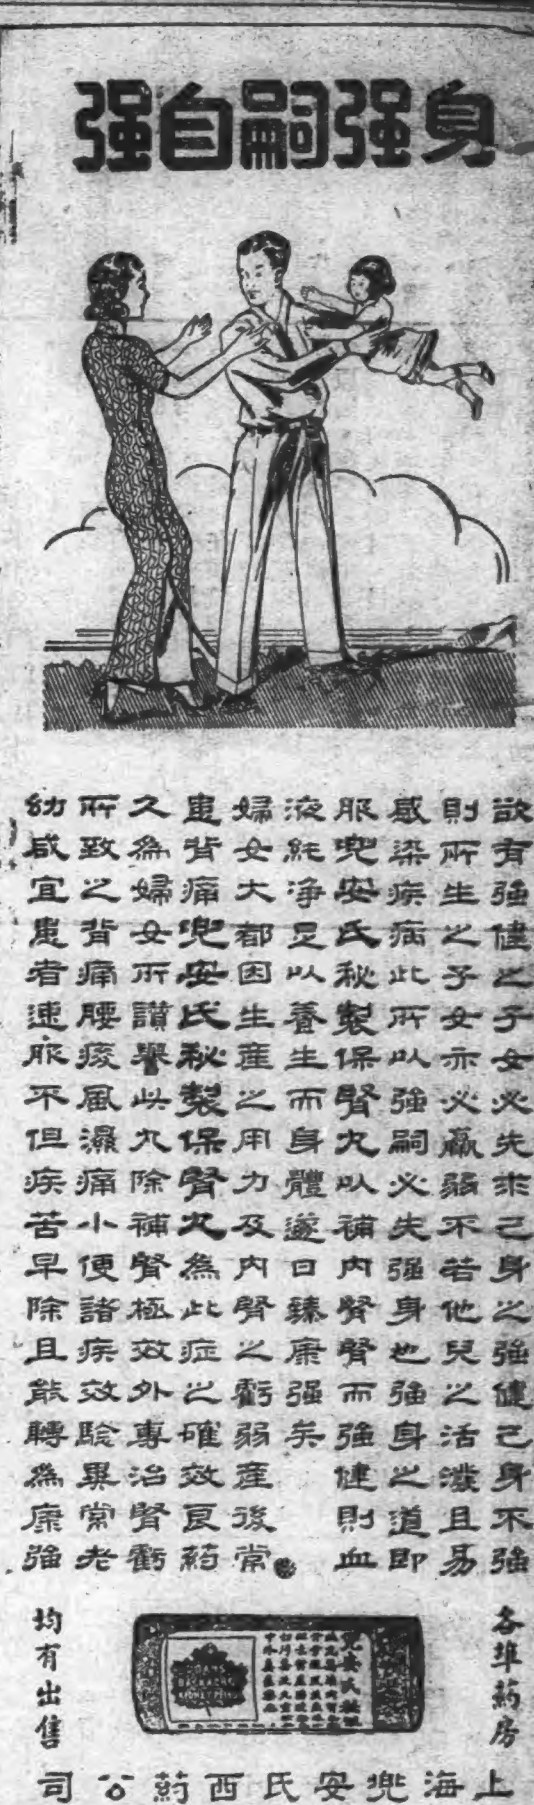 身强嗣自强
欲有强健之子女必先求己身之强健己身不强
則所生之子女亦必羸弱不若他兒之活潑且易
感染疾病此所以强嗣必先强身也强身之道即
服兜安氏秘製保腎丸以補內腎腎而强健則血
液純净足以養生而身體遂日臻康强矣
婦女大都因生產之用力及內腎之虧弱產後常
患背痛兜安氏秘製保腎丸為此症之確效良葯
久為婦女所讃譽此丸除補腎極效外專治腎虧
所致之背痛腰痠風濕痛小便諸疾效驗異常老
幼咸宜患者速服不但疾苦早除且能轉為康強
各埠葯房
均有出售
兜安氏秘製
KIDNEY PILLS
上海兜安氏西葯公司